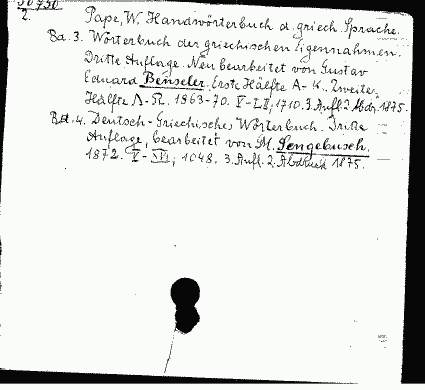 30730
2.
Pape, W. Handwörterbuch d. griech. Sprache.
Bd. 3. Wörterbuch der griechischen Eigennahmen.
Dritte Auflage. Neu bearbeitet von Gustav
Eduard Benseler. Erste Hälfte A-K. Zweite
Hälfte Λ-Ω. 1863-70. V-LII, 1710. 3. Aufl. 2 Abdr. 1875.
Bd. 4. Deutsch-Griechisches Wörterbuch. Dritte
Auflage, bearbeitet von M. Sengebusch.
1872. V- 1048. 3. Aufl. 2. Abdruck 1875.